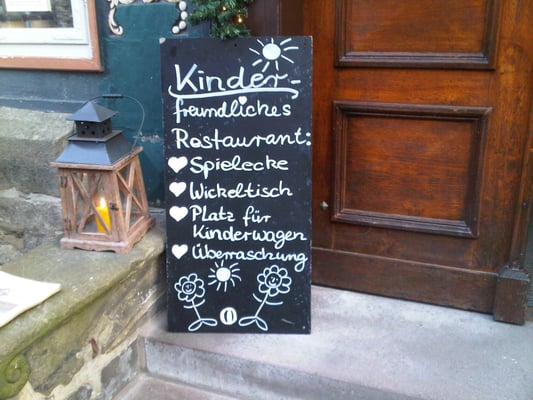 Kinder-
freundliches
Restaurant:
Spielecke
Wickeltisch
Platz für
Kinderwagen
Überraschung